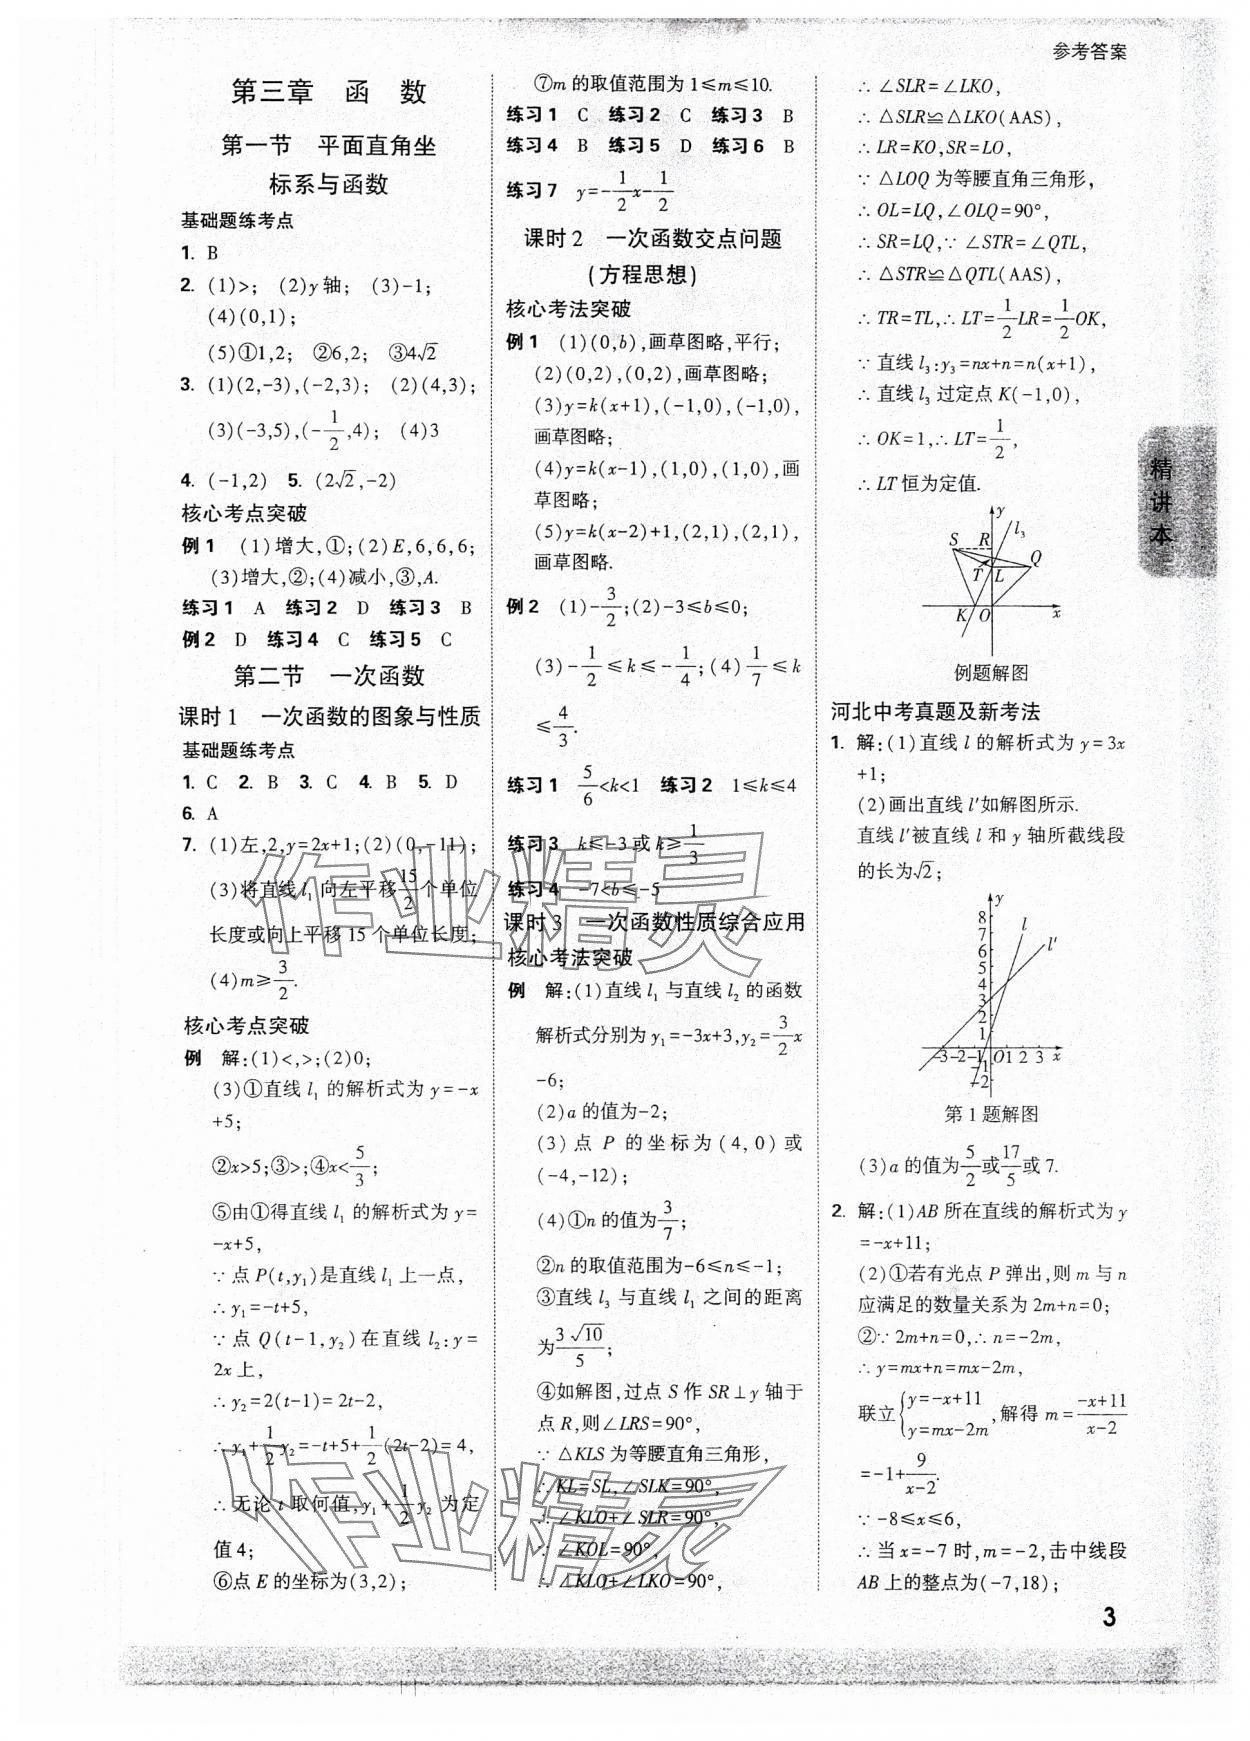 参考答案
第三章 函 数
第一节 平面直角坐
标系与函数
基础题练考点
1. B
2. (1)>; (2)y轴; (3)-1;
(4)(0,1);
(5)①1,2; ②6,2; ③4√2
3. (1)(2,-3),(-2,3); (2)(4,3);
(3)(-3,5),(-1/2,4); (4)3
4. (-1,2) 5. (2√2,-2)
核心考点突破
例1 (1)增大,①;(2)E,6,6,6;
(3)增大,②;(4)减小,③,A.
练习1 A 练习2 D 练习3 B
例2 D 练习4 C 练习5 C
第二节 一次函数
课时1 一次函数的图象与性质
基础题练考点
1. C 2. B 3. C 4. B 5. D
6. A
7. (1)左,2,y=2x+1;(2)(0,-11);
(3)将直线l₁向左平移15/2个单位
长度或向上平移15个单位长度;
(4)m≥3/2.
核心考点突破
例 解:(1)<,>;(2)0;
(3)①直线l₁的解析式为y=-x
+5;
②x>5;③>;④x<5/3;
⑤由①得直线l₁的解析式为y=
-x+5,
∵点P(t,y₁)是直线l₁上一点,
∴y₁=-t+5,
∵点Q(t-1,y₂)在直线l₂:y=
2x上,
∴y₂=2(t-1)=2t-2,
∴y₁+1/2y₂=-t+5+1/2(2t-2)=4,
∴无论t取何值,y₁+1/2y₂为定
值4;
⑥点E的坐标为(3,2);
⑦m的取值范围为1≤m≤10.
练习1 C 练习2 C 练习3 B
练习4 B 练习5 D 练习6 B
练习7 y=-1/2x-1/2
课时2 一次函数交点问题
(方程思想)
核心考法突破
例1 (1)(0,b),画草图略,平行;
(2)(0,2),(0,2),画草图略;
(3)y=k(x+1),(-1,0),(-1,0),
画草图略;
(4)y=k(x-1),(1,0),(1,0),画
草图略;
(5)y=k(x-2)+1,(2,1),(2,1),
画草图略.
例2 (1)-3/2;(2)-3≤b≤0;
(3)-1/2≤k≤-1/4;(4)1/7≤k
≤4/3.
练习1 5/6<k<1 练习2 1≤k≤4
练习3 k≤-3或k≥1/3
练习4 -7<b≤-5
课时3 一次函数性质综合应用
核心考法突破
例 解:(1)直线l₁与直线l₂的函数
解析式分别为y₁=-3x+3,y₂=3/2x
-6;
(2)a的值为-2;
(3)点P的坐标为(4,0)或
(-4,-12);
(4)①n的值为3/7;
②n的取值范围为-6≤n≤-1;
③直线l₃与直线l₁之间的距离
为3√10/5;
④如解图,过点S作SR⊥y轴于
点R,则∠LRS=90°,
∵△KLS为等腰直角三角形,
∴KL=SL,∠SLK=90°,
∴∠KLO+∠SLR=90°,
∵∠KOL=90°,
∴∠KLO+∠LKO=90°,
∴∠SLR=∠LKO,
∴△SLR≌△LKO(AAS),
∴LR=KO,SR=LO,
∵△LOQ为等腰直角三角形,
∴OL=LQ,∠OLQ=90°,
∴SR=LQ,∵∠STR=∠QTL,
∴△STR≌△QTL(AAS),
∴TR=TL,∴LT=1/2LR=1/2OK,
∵直线l₃:y₃=nx+n=n(x+1),
∴直线l₃过定点K(-1,0),
∴OK=1,∴LT=1/2,
∴LT恒为定值.
y
l₃
S R
Q
T L
K O x
例题解图
河北中考真题及新考法
1. 解:(1)直线l的解析式为y=3x
+1;
(2)画出直线l′如解图所示.
直线l′被直线l和y轴所截线段
的长为√2;
y
8
7
6
5
4
3
2
1
l
l′
-3-2-1 O 1 2 3 x
-1
-2
第1题解图
(3)a的值为5/2或17/5或7.
2. 解:(1)AB所在直线的解析式为y
=-x+11;
(2)①若有光点P弹出,则m与n
应满足的数量关系为2m+n=0;
②∵2m+n=0,∴n=-2m,
∴y=mx+n=mx-2m,
联立{y=-x+11 y=mx-2m,解得m=(-x+11)/(x-2)
=-1+9/(x-2).
∵-8≤x≤6,
∴当x=-7时,m=-2,击中线段
AB上的整点为(-7,18);
精讲本
作业精灵
作业精灵
3